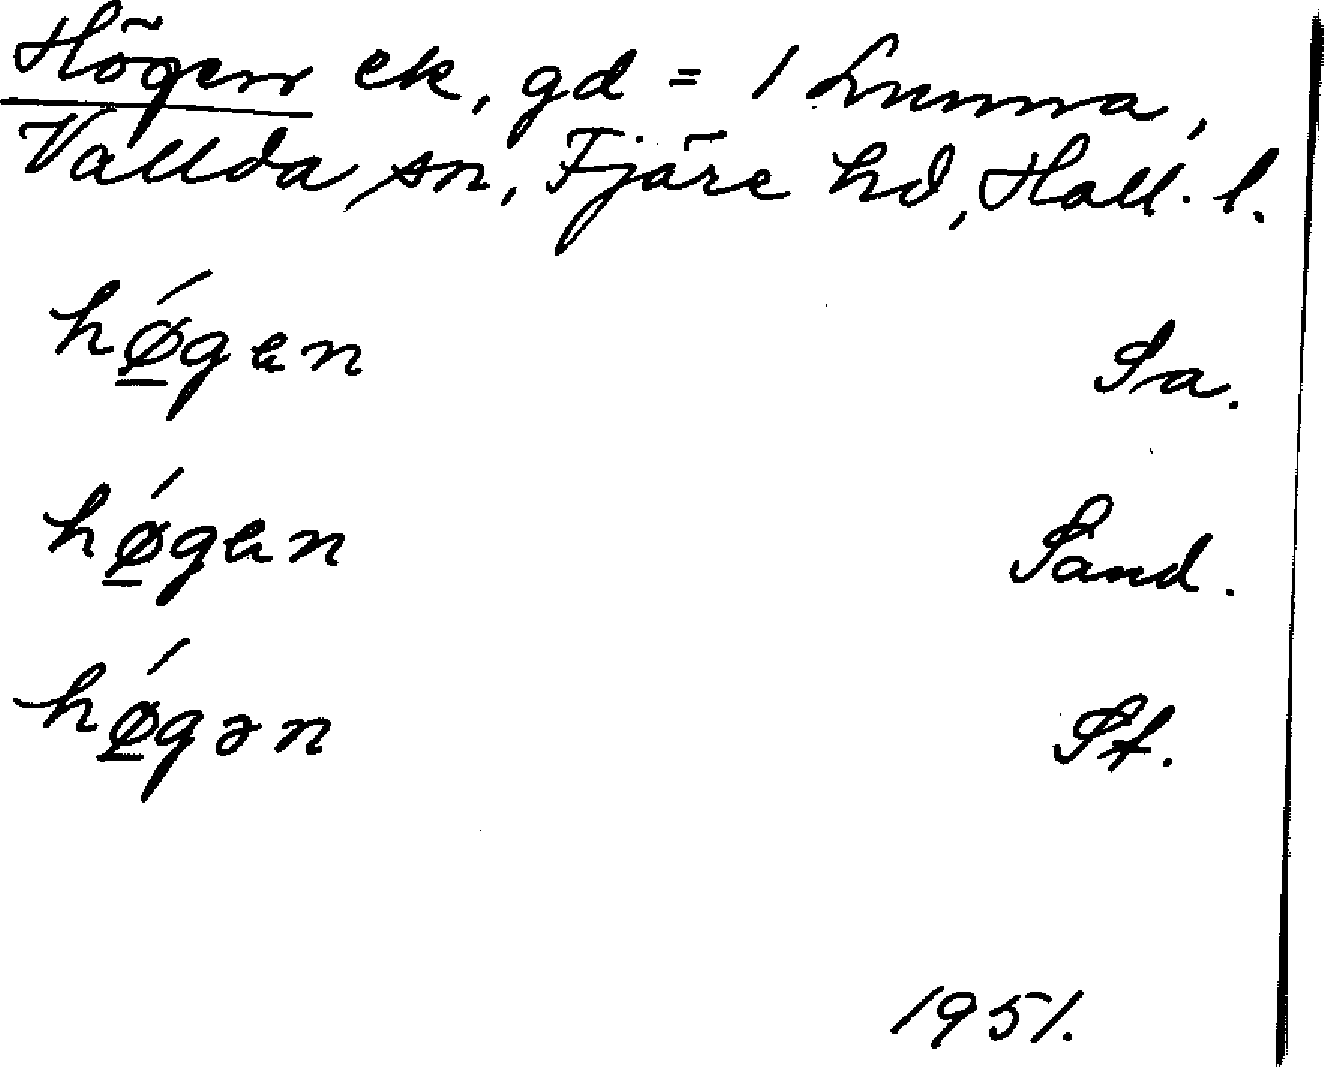 Högen ek, gd = 1 Lunna,
Vallda sn, Fjäre hd, Hall. l.
hǿ̲gen Sa.
hǿ̲gen Sand.
hǿ̲gən St.
1951.